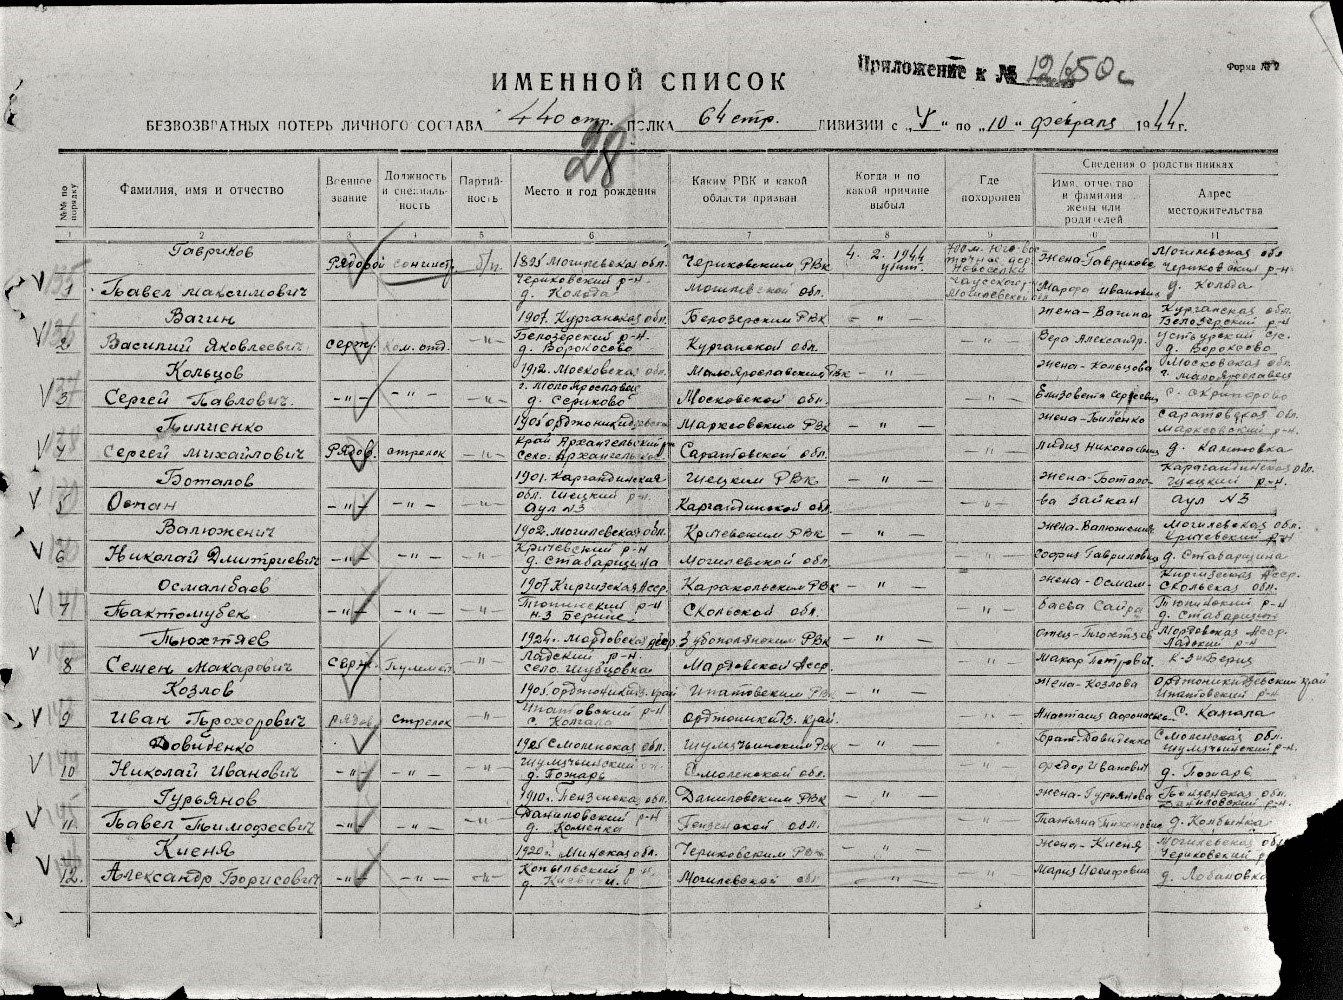 Приложение к № 12650с
Форма № 2
ИМЕННОЙ СПИСОК
БЕЗВОЗВРАТНЫХ ПОТЕРЬ ЛИЧНОГО СОСТАВА 440 стр. ПОЛКА 64 стр. ДИВИЗИИ с „4“ по „10“ февраля 1944 г.
28
Сведения о родственниках
№№ по порядку Фамилия, имя и отчество Военное звание Должность и специальность Партийность Место и год рождения Каким РВК и какой области призван Когда и по какой причине выбыл Где похоронен Имя, отчество и фамилия жены или родителей Адрес местожительства
1 2 3 4 5 6 7 8 9 10 11
Гавриков Рядовой б/п. 1895 Могилевская обл. Чериковским РВК 4. 2. 1944 убит. Жена-Гаврикова Могильская обл.
Чериковский р-н. Новоселки Чериковским р-н
1 Павел Максимович д. Колода Могилевской обл. Марфа Иванович д. Колода
Вагин 1907. Курганская обл. Белозерским РВК – " – Жена-Вагина Курганская обл.
Белозерский р-н. Белозерский р-н
2 Василий Яковлевич серж. Ком. отд. -"- д. Ворокосово Курганской обл. -"- Вера Александр. д. Ворокосово
Кольцов 1912. Московская обл. Малоярославским РВК – " – Жена-Кольцова Московская обл.
г. Малоярославец г. Малоярославец
3 Сергей Павлович. -"- -"- -"- д. Сериково Московской обл. -"- Елизовета Сергеевна
Пилиенко 1905 Марксовским РВК – " – Саратовская обл.
Край Архангельский р-н Марксовский р-н.
4 Сергей Михайлович Рядов. стрелок -"- село. Архангельское Саратовской обл. -"- Лидия Николаевна
Боталов 1901. Каргандинская Шецким РВК – " – Жена-Ботало- Карагандинская обл.
обл. Шецкий р-н. Шецкий р-н.
5 Оспан -"- -"- -"- Аул №3 Каргандинской обл. ва Зайкан аул №3
Валюженич 1902. Могилевская обл. Кричевским РВК – " – Жена-Валюженич Могилевская обл.
Кричевский р-н Кричевский р-н
6 Николай Дмитриевич -"- -"- -"- д. Стабарщина Могилевской обл. София Гавриловна д. Стабарщина
Осмамбаев 1907 Киргизская Асср. Каракольским РВК – " – Жена-Осмам- Киргизская Асср.
Тюпинский р-н Скольская обл.
7 Пактомубек -"- -"- -"- Скольской обл. баева Сайра Тюпинский р-н
д. Стабарщин
Пьюхтяев 1924. Мордовская Асср Зубополянским РВК – " – Отец-Пюхтяев Мордовская Асср.
Ладский р-н. Ладский р-н
8 Семен Макарович серж. Пулемет. -"- село. Шувцовка Мардовской Асср. -"- Макар Петрович
Козлов 1905. Орджоникидз. край Ипатовским РВК – " – Жена-Козлова Орджоникидзевский край
Ипатовский р-н Ипатовский р-н
9 Иван Прохорович рядов. стрелок -"- с. Калгала Орджоникидз. край. -"- с. Калгала
Довиденко 1925 Смоленская обл. Шумячинским РВК – " – Брат-Давиденко Смоленская обл.
Шумячинский р-н. Шумячинский р-н.
10 Николай Иванович -"- -"- д. Пожарь Смоленской обл. Федор Иванович д. Пожарь
Гурьянов 1910. Пензенская обл. Даниловским РВК – " – Жена-Гурьянова Пензенская обл.
Даниловский р-н Даниловский р-н.
11 Павел Тимофеевич -"- -"- -"- Пензенской обл. -"- Татьяна Тихоновна
Кисня 1920. Минская обл. Чериковским РВК – " – Жена-Кисня Могилевская обл.
Копыльский р-н. Чериковский р
12. Александр Борисович -"- -"- -"- Могилевской обл -"- Мария Иосифовна д. Лобановка